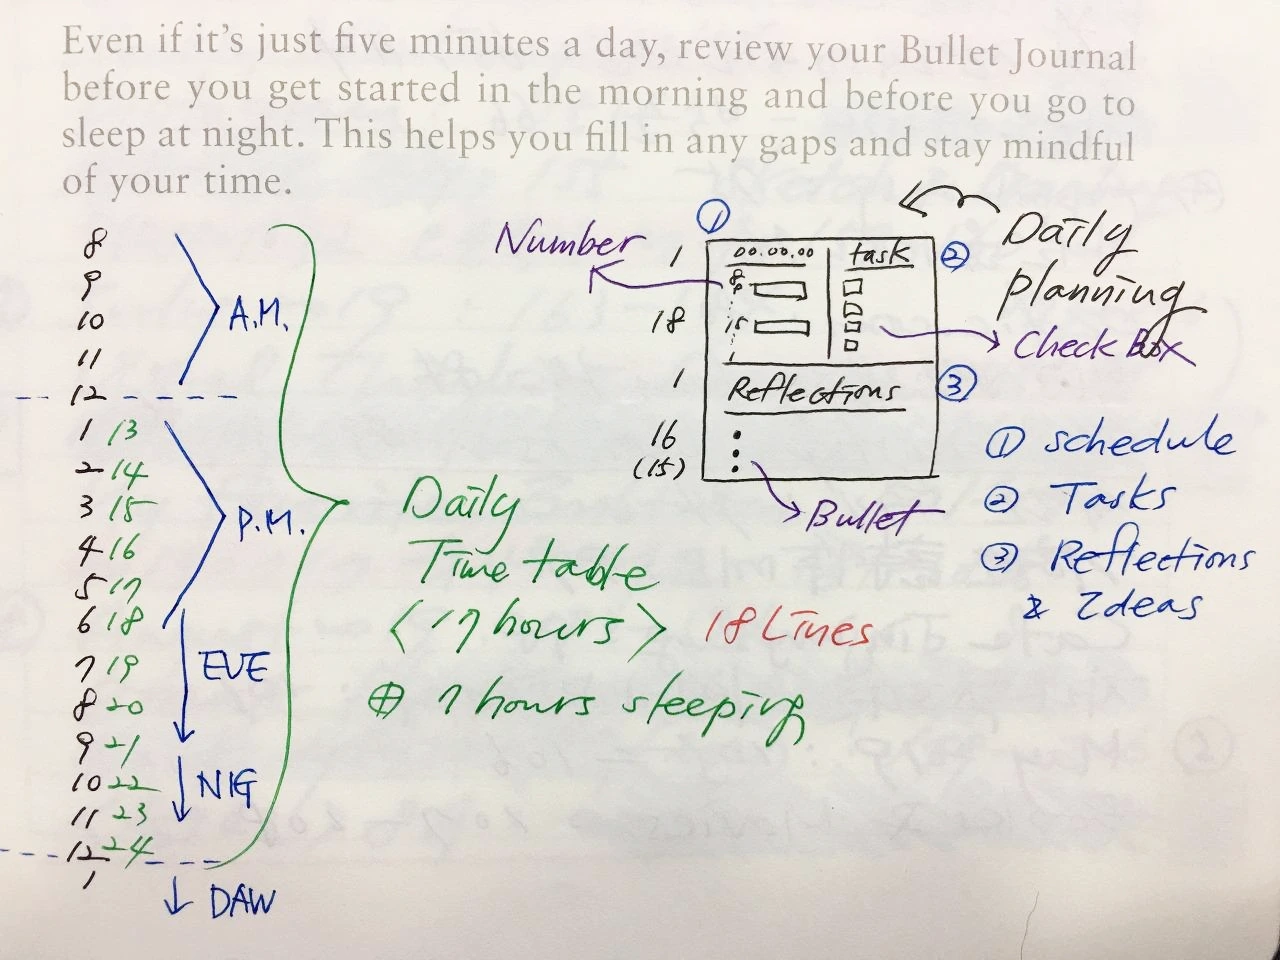 Even if it's just five minutes a day, review your Bullet Journal
before you get started in the morning and before you go to
sleep at night. This helps you fill in any gaps and stay mindful
of your time.
8
9
10
11
12
A.M.
1 13
2 14
3 15
4 16
5 17
6 18
P.M.
7 19
8 20
EVE
9 21
10 22
11 23
NIG
12 24
1
DAW
Daily
Time table
<17 hours> 18 Lines
⊕ 7 hours sleeping
Number
①
1
18
1
16
(15)
00.00.00
8
9
15
task
②
Reflections
③
Bullet
Daily
Planning
Check Box
① schedule
② Tasks
③ Reflections
& Ideas